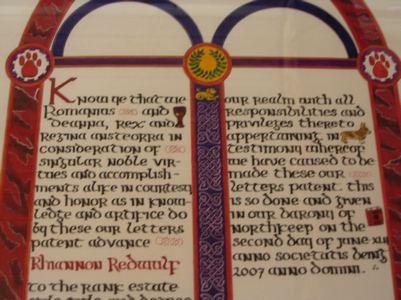 Know ye that we
Romanus and
Deanna, Rex and
Regina ansteorra in
consideration of
singular noble vir-
tues and accomplish-
ments alife in courtesy
and honor as in know-
ledge and artifice do
by these our letters
patent advance
Rhiannon Redwulf
to the rank estate
our realm with all
responsibilities and
privileges thereto
appertaining in
testimony whereof
we have caused to be
made these our
letters patent this
is so done and given
in our barony of
northkeep on the
second day of june xlii
anno societatis being
2007 anno domini.